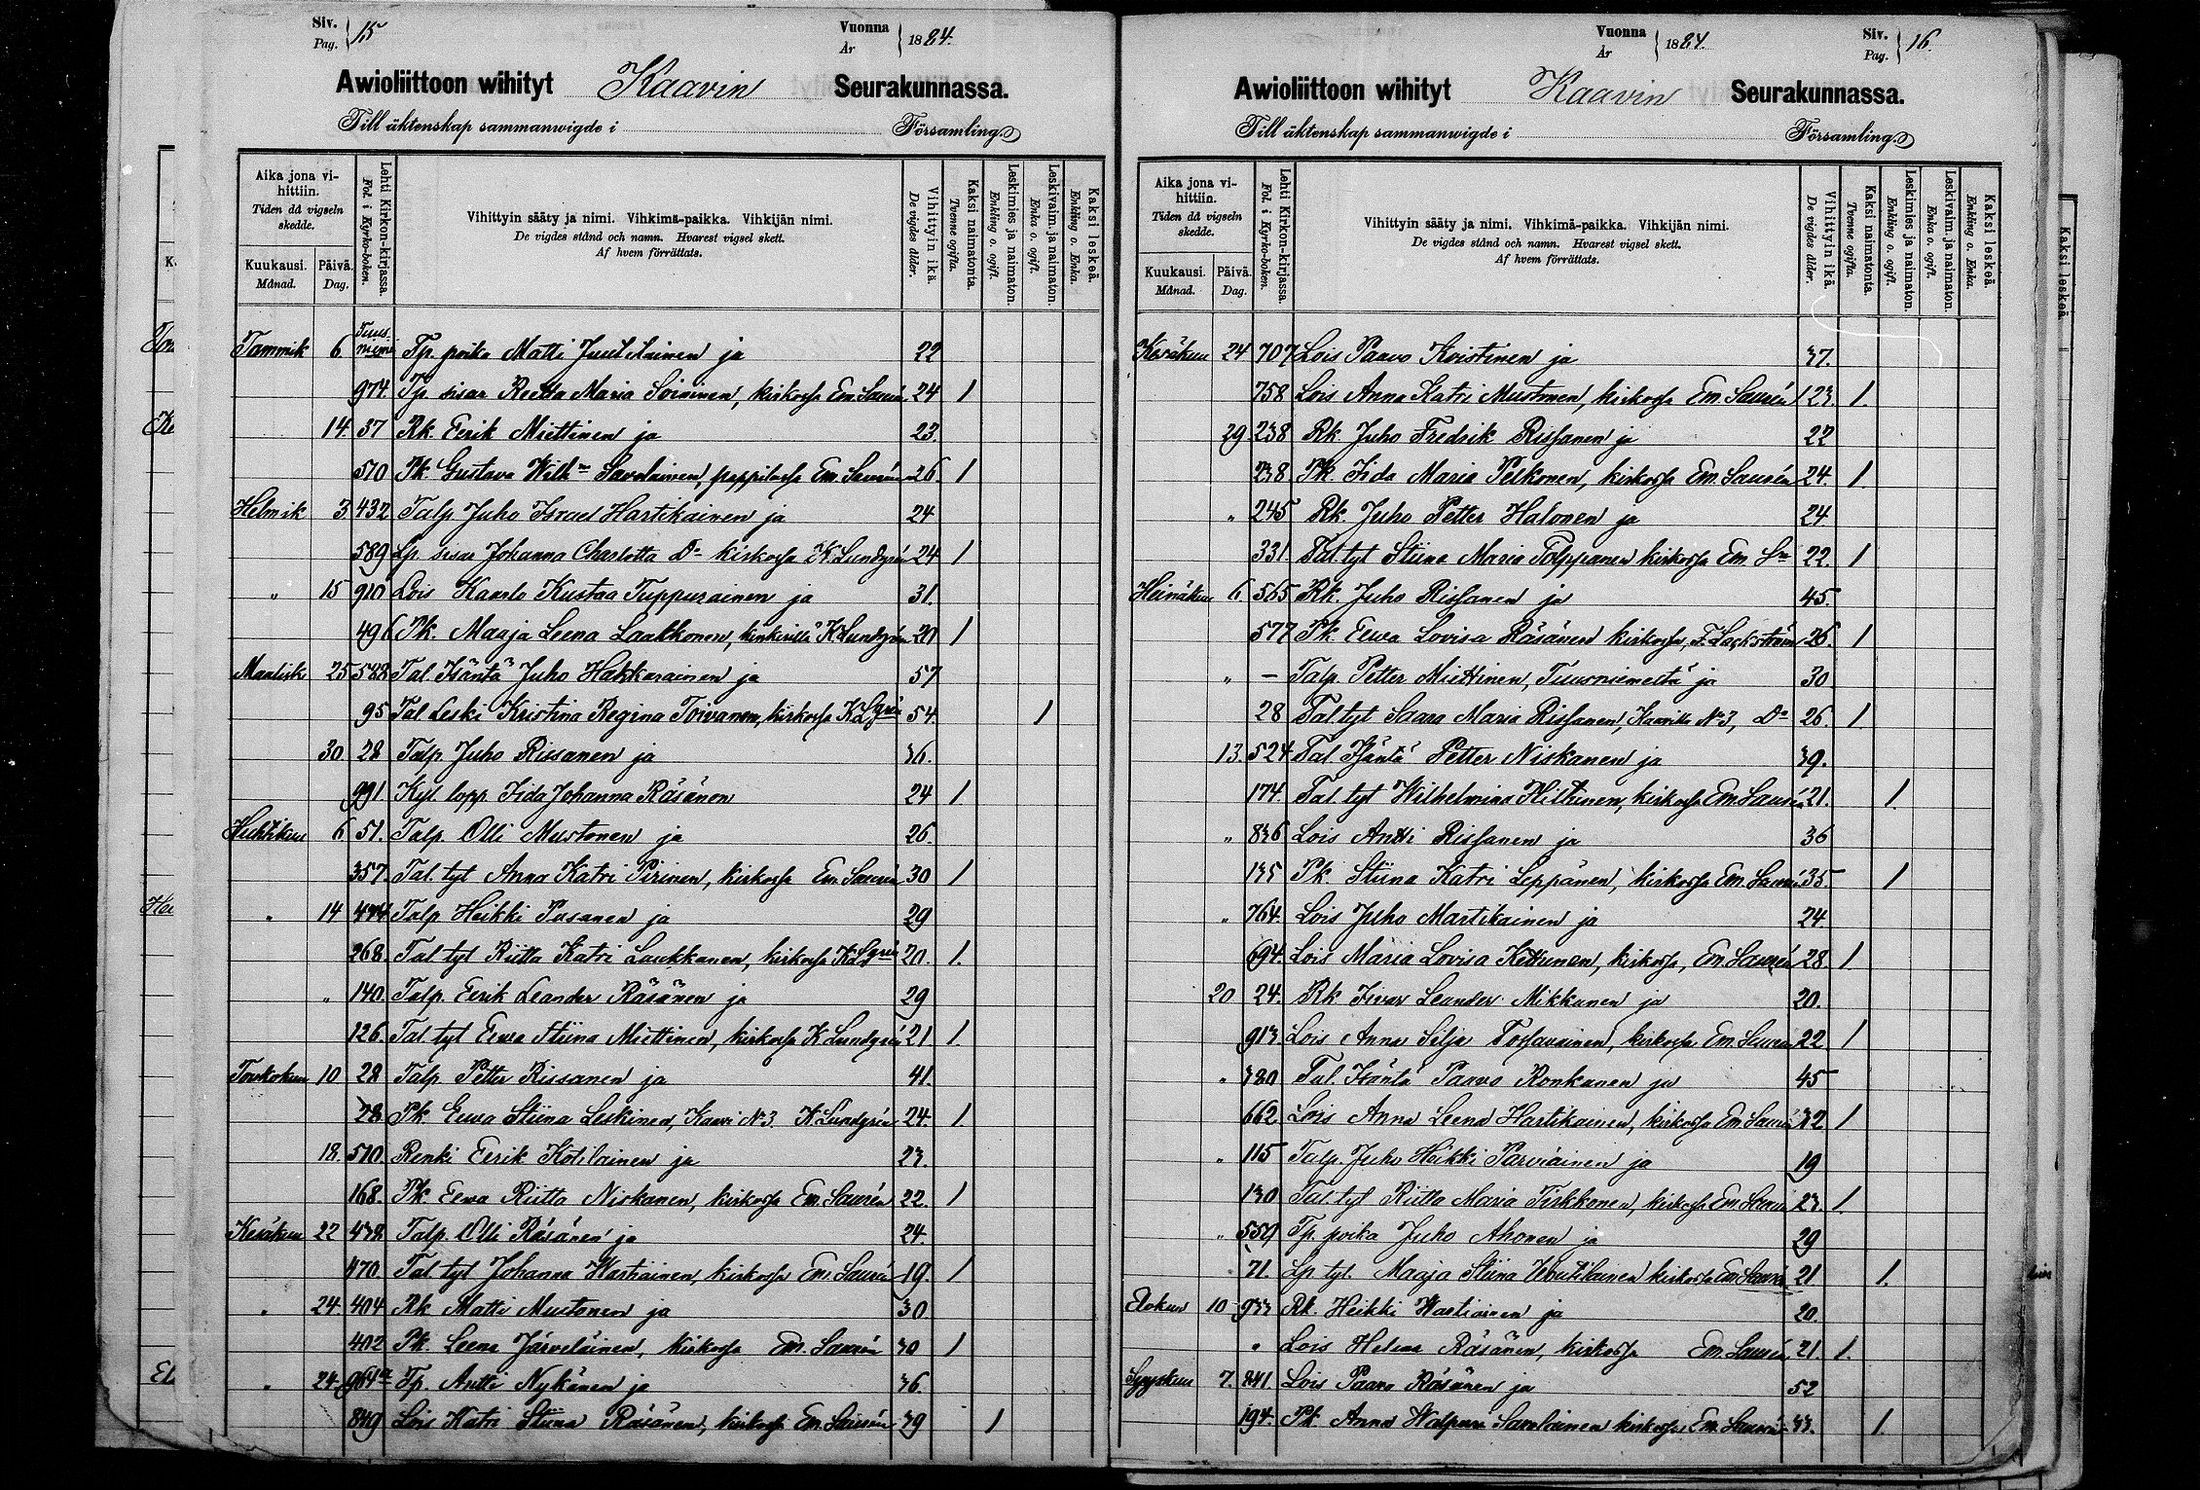 Siv.
Pag. 15
Vuonna
År 1884.
Awioliittoon wihityt Kaavin Seurakunnassa.
Till äktenskap sammanwigde i Församling.
Aika jona vihittiin.
Tiden då vigseln skedde.
Kuukausi.
Månad.
Päivä.
Dag.
Lehti Kirkon-kirjassa.
Fol. i Kyrko-boken.
Vihittyin sääty ja nimi. Vihkimä-paikka. Vihkijän nimi.
De vigdes stånd och namn. Hvarest vigsel skett.
Af hvem förrättats.
Vihittyin ikä.
De vigdes ålder.
Kaksi naimatonta.
Tvenne ogifta.
Leskimies ja naimaton.
Enkling o. ogift.
Leskivaim. ja naimaton.
Enka o. ogift.
Kaksi leskeä.
Enkling o. Enka.
Tammik 6 Tuusniemi Tp. poika Matti Juutilainen ja 22
974. Tp. sisar Reetta Maria Soininen, kirkossa Em. Saurén 24 1
14. 37 Rk. Eerik Miettinen ja 23.
510 Pk. Gustava Wilh:na Savolainen, pappilassa Em. Saurén 26. 1
Helmik 3. 432 Talp. Juho Israel Hartikainen ja 24
589 Lp. sisar Johanna Charlotta D:o kirkossa K. Lundgrén 24 1
" 15 910 Lois Kaarlo Kustaa Tuppurainen ja 31.
496 Pk. Maaja Leena Laakkonen, kinkerillä K. Lundgrén 20 1
Maalisk 25 588 Tal. Isäntä Juho Hakkarainen ja 57
95 Tal. Leski Kristina Regina Toivanen, kirkossa K. Lgrén 54 1
30. 28 Talp. Juho Rissanen ja 36.
991 Kyl. lopp. Iida Johanna Räsänen 24 1
Huhtikuu 6 51. Talp. Olli Mustonen ja 26.
357. Tal. tyt Anna Katri Pirinen, kirkossa Em. Saurén 30 1
" 14 474 Talp Heikki Pasanen ja 29
268. Tal tyt Riitta Katri Laukkanen, kirkossa K. Lgrén 20. 1.
" 140. Talp. Eerik Leander Räsänen ja 29
126. Tal tyt Eewa Stiina Miettinen, kirkossa K Lundgrén 21 1.
Toukokuu 10 28 Talp Petter Rissanen ja 41.
28 Pk. Eewa Stiina Leskinen, Kaavi No 3. K. Lundgrén 24. 1
18. 510. Renki Eerik Kotilainen ja 23.
168. Pk Eewa Riitta Niskanen, kirkossa Em. Saurén 22. 1
Kesäkuu 22 438 Talp. Olli Räsänen ja 24.
470. Tal tyt Johanna Wartiainen, kirkossa Em. Saurén 19. 1
" 24. 404 Rk Matti Mustonen ja 30
402 Pk. Leena Järveläinen, kirkossa Em. Saurén 30 1
" 24. 964 Tp. Antti Nykänen ja 36.
849 Lois Katri Stiina Räsänen, kirkossa Em. Saurén 39 1
Vuonna
År 1884.
Siv.
Pag. 16.
Awioliittoon wihityt Kaavin Seurakunnassa.
Till äktenskap sammanwigde i Församling.
Aika jona vihittiin.
Tiden då vigseln skedde.
Kuukausi.
Månad.
Päivä.
Dag.
Lehti Kirkon-kirjassa.
Fol. i Kyrko-boken.
Vihittyin sääty ja nimi. Vihkimä-paikka. Vihkijän nimi.
De vigdes stånd och namn. Hvarest vigsel skett.
Af hvem förrättats.
Vihittyin ikä.
De vigdes ålder.
Kaksi naimatonta.
Tvenne ogifta.
Leskimies ja naimaton.
Enkling o. ogift.
Leskivaim. ja naimaton.
Enka o. ogift.
Kaksi leskeä.
Enkling o. Enka.
Kesäkuu 24 707 Lois Paavo Koistinen ja 37.
758 Lois Anna Katri Mustonen, kirkossa Em. Saurén 23. 1.
29. 238 Rk. Juho Fredrik Rissanen ja 22
238 Pk Iida Maria Pelkonen, kirkossa Em. Saurén 24. 1.
" 245 Rk. Juho Petter Halonen ja 24
331. Tal tyt Stiina Maria Tolppanen kirkossa Em. S:n 22. 1
Heinäkuu 6. 565 Rk. Juho Rissanen ja 45.
577 Pk. Eewa Lovisa Räsänen kirkossa, F. Lackström 26. 1
" – Talp. Petter Miettinen, Tuusniemeltä ja 30
28 Tal tyt Saara Maria Rissanen, Kaavilla No 3, D:o 26. 1
13. 524 Tal Isäntä Petter Niskanen ja 39.
174 Tal tyt Wilhelmina Hiltunen, kirkossa Em. Saurén 21. 1.
" 836 Lois Antti Rissanen ja 36
135 Pk. Stiina Katri Leppänen, kirkossa Em. Saurén 35. 1
" 764. Lois Juho Martikainen ja 24.
694. Lois Maria Lovisa Kettunen, kirkossa, Em. Saurén 28. 1.
20 24. Rk Iivar Leander Mikkanen ja 20.
913. Lois Anna Silja Tossavainen, kirkossa Em. Saurén 22 1
" 380 Tal. Isäntä Paavo Ronkanen ja 45
662. Lois Anna Leena Hartikainen, kirkossa Em. Saurén 32 1
" 115 Talp. Juho Heikki Parviainen ja 19
130 Tal. tyt Riitta Maria Pirkkonen, kirkossa Em. Saurén 23. 1.
" 559 Tp. poika Juho Ahonen ja 29
71. Lp tyt. Maaja Stiina Woutilainen kirkossa Em. Saurén 21 1.
Elokuu 10 933 Rk. Heikki Wartiainen ja 20.
" Lois Helena Räsänen, kirkossa Em. Saurén 21. 1.
Syyskuu 7. 841. Lois Paavo Räsänen ja 52
194. Pk Anna Walpuri Savolainen kirkossa Em. Saurén 33. 1.
Kaksi leskeä.